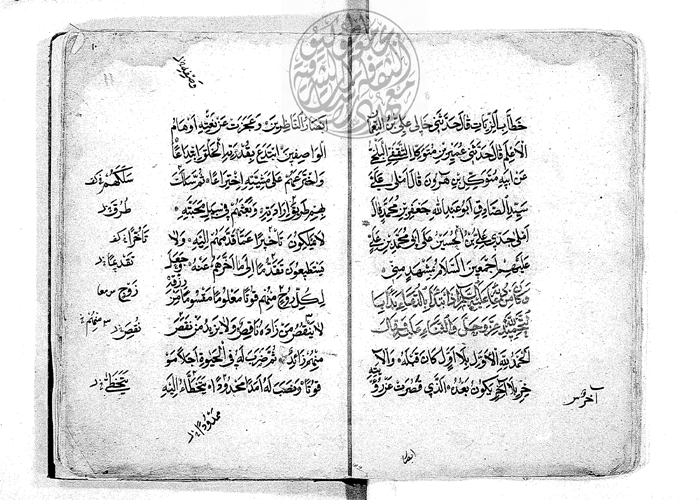 خطاب الزيات قال حدثني خالي علي بن النعمان
الاعلم قال حدثني عمير بن متوكل الثقفي البلخي
عن ابيه متوكل بن هرون قال املى علي
سيدي الصادق ابو عبد الله جعفر بن محمد قال
املى جدي علي بن الحسين على ابي محمد بن علي
عليهم اجمعين السلام بمشهد مني
وكان من دعائه عليه السلام اذا ابتدأ بالدعاء بدأ
بالتحميد لله عز وجل والثناء عليه فقال
الحمد لله الاول بلا اول كان قبله والا
خر بلا اخر يكون بعده الذي قصرت عن رؤيته
آخر
ابصار
ابصار الناظرين وعجزت عن نعته اوهام
الواصفين ابتدع بقدرته الخلق ابتداعا
واخترعهم على مشيته اختراعا ثم سلك
بهم طريق ارادته وبعثهم في سبيل محبته
لا يملكون تاخيرا عما قدمهم اليه ولا
يستطيعون تقدما الى ما اخرهم عنه وجعل
لكل روح منهم قوتا معلوما مقسوما من رزقه
لا ينقص من زاده ناقص ولا يزيد من نقص
منهم زائد ثم ضرب له في الحيوة اجلا مو
قوتا ونصب له امدا محدودا يتخطأ اليه
سلكهم
طرق
تاخرا
تقديما
زوج
نقص منهم
يتخطى
ممدودا